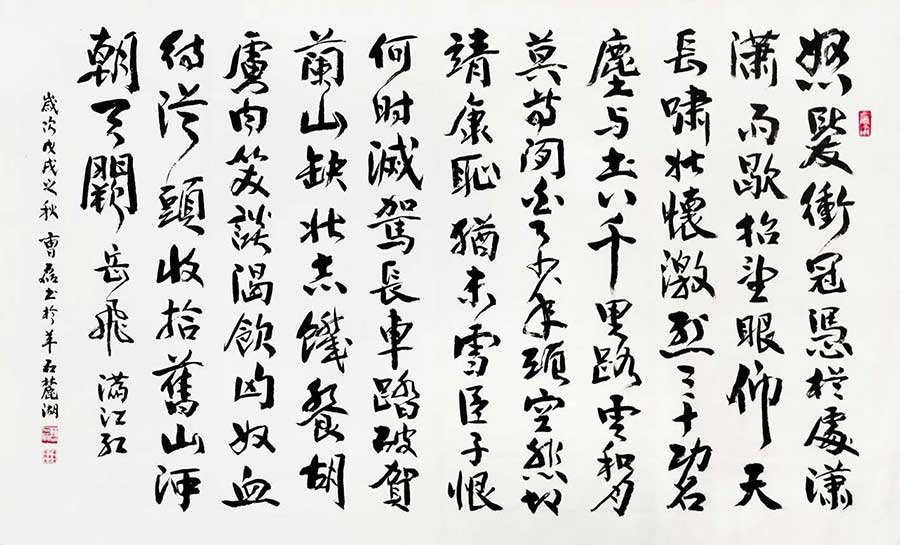 怒髮衝冠憑栏處潇
潇雨歇抬望眼仰天
長嘯壯懷激烈三十功名
塵与土八千里路雲和月
莫等閒白了少年頭空悲切
靖康恥猶未雪臣子恨
何时滅駕長車踏破賀
蘭山缺壯志饑餐胡
虜肉笑談渴飲匈奴血
待從頭收拾舊山河
朝天闕 岳飛 滿江紅
歲次戊戌之秋 曹磊书於羊石麓湖